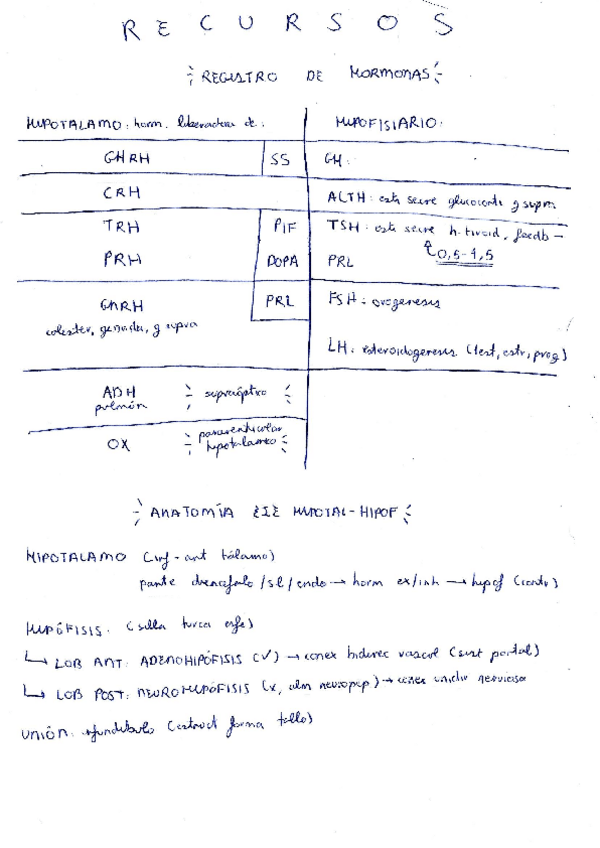 RECURSOS
REGISTRO DE HORMONAS
HIPOTALAMO: horm. liberadora de:
HIPOFISIARIO:
GHRH SS GH:
CRH ALTH: est secre glucocorti g supra
TRH PIF TSH: est secre h. tiroid, feedb -
0,5-4,5
PRH DOPA PRL
GNRH PRL FSH: ovogenesis
colester, genada, g supra
LH: esteroidogenesis (test, estr, prog)
ADH supraóptico
pulmón
OX paraventricular
hipotalamico
ANATOMÍA EJE HIPOTAL-HIPOF
HIPOTALAMO (inf-ant tálamo)
parte diencéfalo / sl / endo → horm ex/inh → hipof (contr)
HIPÓFISIS: (silla turca esfe)
↳ LOB ANT: ADENOHIPÓFISIS (✓) → conex bidirec vascul (sist portal)
↳ LOB POST: NEUROHIPÓFISIS (x, alm neuropep) → conex unidir nerviosa
UNIÓN: infundibulo (estruct forma tallo)